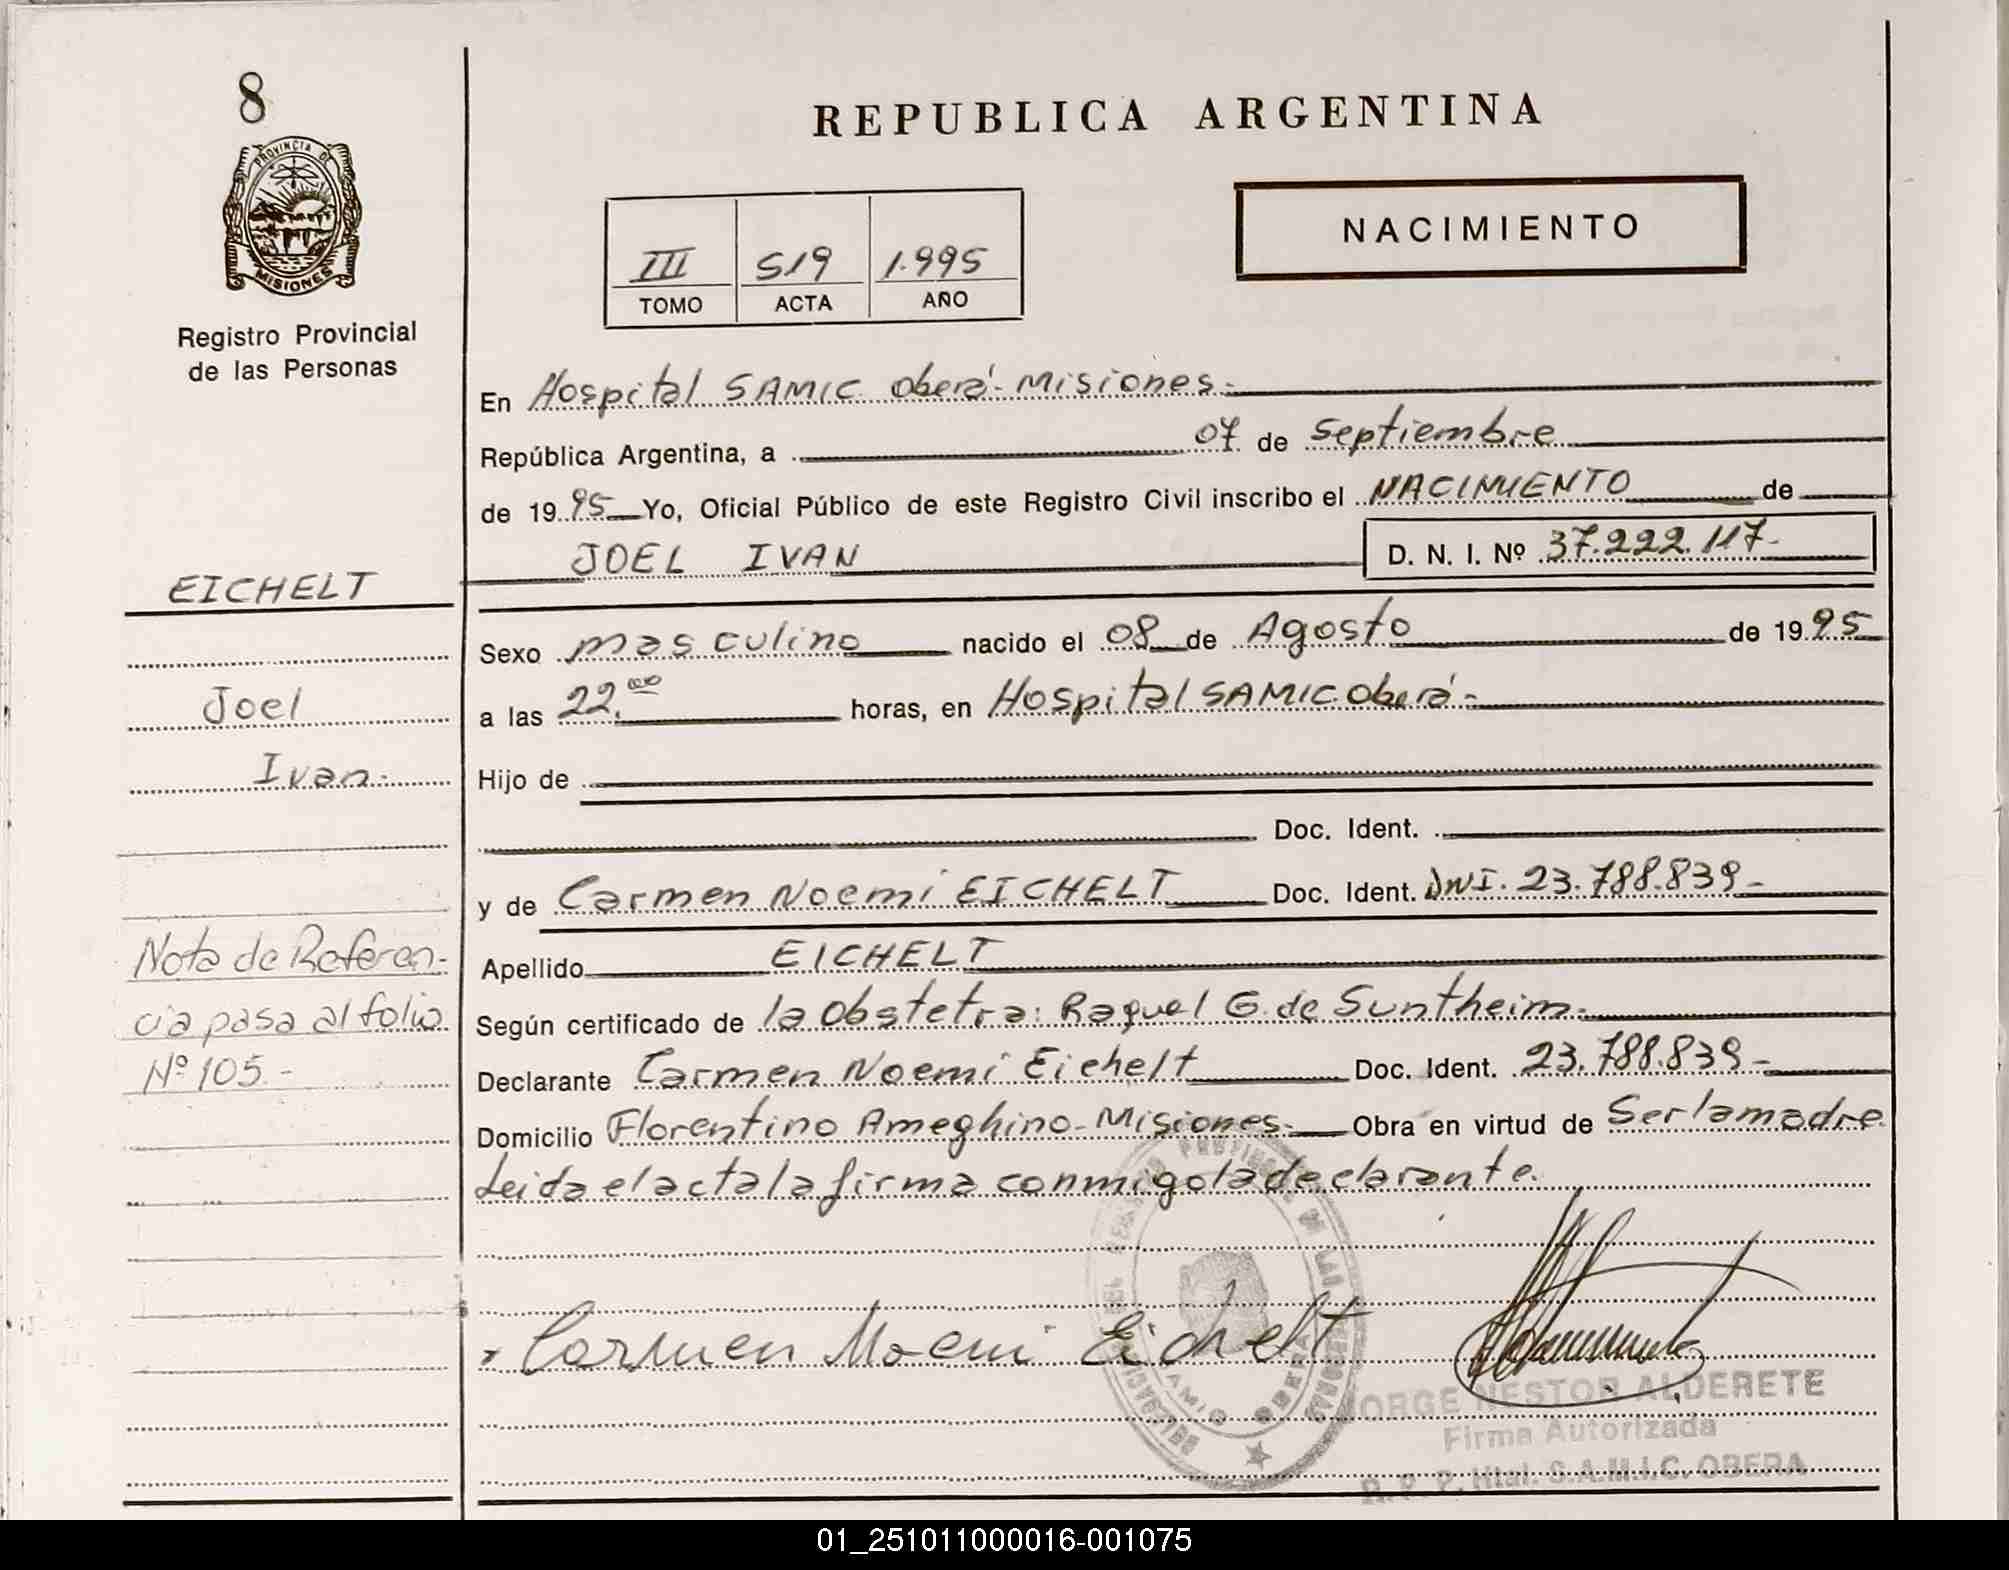 8
REPUBLICA ARGENTINA
PROVINCIA DE
MISIONES
Registro Provincial
de las Personas
NACIMIENTO
III 519 1.995
TOMO ACTA AÑO
En Hospital SAMIC Oberá - Misiones.-
República Argentina, a 07 de Septiembre
de 1995 Yo, Oficial Público de este Registro Civil inscribo el NACIMIENTO de
JOEL IVAN D. N. I. Nº 37.222.117-
EICHELT
Joel
Ivan.-
Sexo masculino nacido el 08 de Agosto de 1995
a las 22.00 horas, en Hospital SAMIC Oberá-
Hijo de
Doc. Ident.
y de Carmen Noemí EICHELT Doc. Ident. DNI. 23.788.839-
Apellido EICHELT
Según certificado de la Obstetra: Raquel G. de Suntheim.-
Declarante Carmen Noemí Eichelt Doc. Ident. 23.788.839-
Domicilio Florentino Ameghino - Misiones.- Obra en virtud de Ser la madre.
Leida el acta la firma conmigo la declarante.
Nota de Referen-
cia pasa al folio
Nº 105.-
Carmen Noemi Eichelt
JORGE NESTOR ALDERETE
Firma Autorizada
R. P. P. Htal. S.A.M.I.C. OBERA
01_251011000016-001075